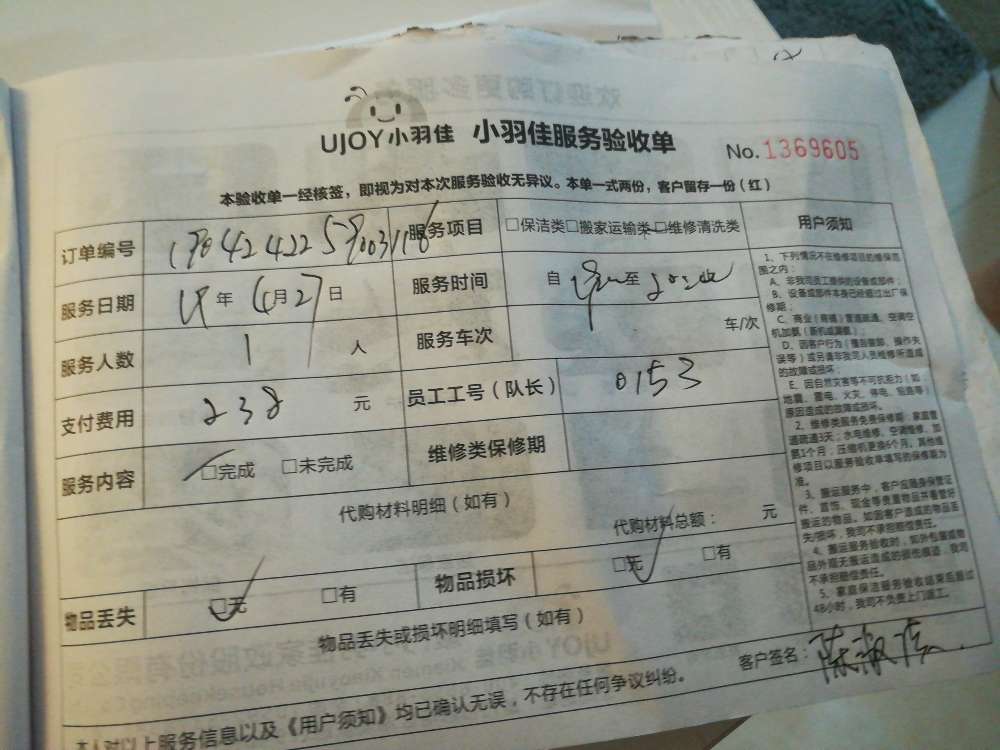 UJOY小羽佳 小羽佳服务验收单
No. 1369605
本验收单一经核签，即视为对本次服务验收无异议。本单一式两份，客户留存一份（红）
订单编号 服务项目 □保洁类□搬家运输类□维修清洗类
服务日期 19年4月27日 服务时间 自 至
服务人数 1 人 服务车次 车/次
支付费用 238 元 员工工号（队长） 0153
服务内容 □完成 □未完成 维修类保修期
代购材料明细（如有）
代购材料总额： 元
物品丢失 □无 □有 物品损坏 □无 □有
物品丢失或损坏明细填写（如有）
客户签名：
本人对以上服务信息以及《用户须知》均已确认无误，不存在任何争议纠纷。
用户须知
1、下列情况不在维修项目的维保范
围之内：
A、非我司员工提供的设备或部件；
B、设备或部件本身已经超过出厂保
修期；
C、商业（商铺）管道疏通、空调空
机加氟（新机或漏氟）；
D、因客户行为（擅自撤卸、操作失
误等）或另请非我司人员维修所造成
的故障或损坏；
E、因自然灾害等不可抗拒力（如：
地震、雷电、火灾、停电、短路等）
原因造成的故障或损坏。
2、维修类服务免费保修期：家庭管
道疏通3天；水电维修、空调维修、加
氟1个月；压缩机更换6个月，其他维
修项目以服务验收单填写的保修期为
准。
3、搬运服务中，客户应随身保管证
件、首饰、现金等贵重物品并看管好
搬运的物品。如因客户造成的物品丢
失/损坏，我司不承担赔偿责任。
4、搬运服务验收时，如外包装或物
品外观无搬运造成的损伤痕迹，我司
不承担赔偿责任。
5、家庭保洁服务验收结束后超过
48小时，我司不负责上门返工。